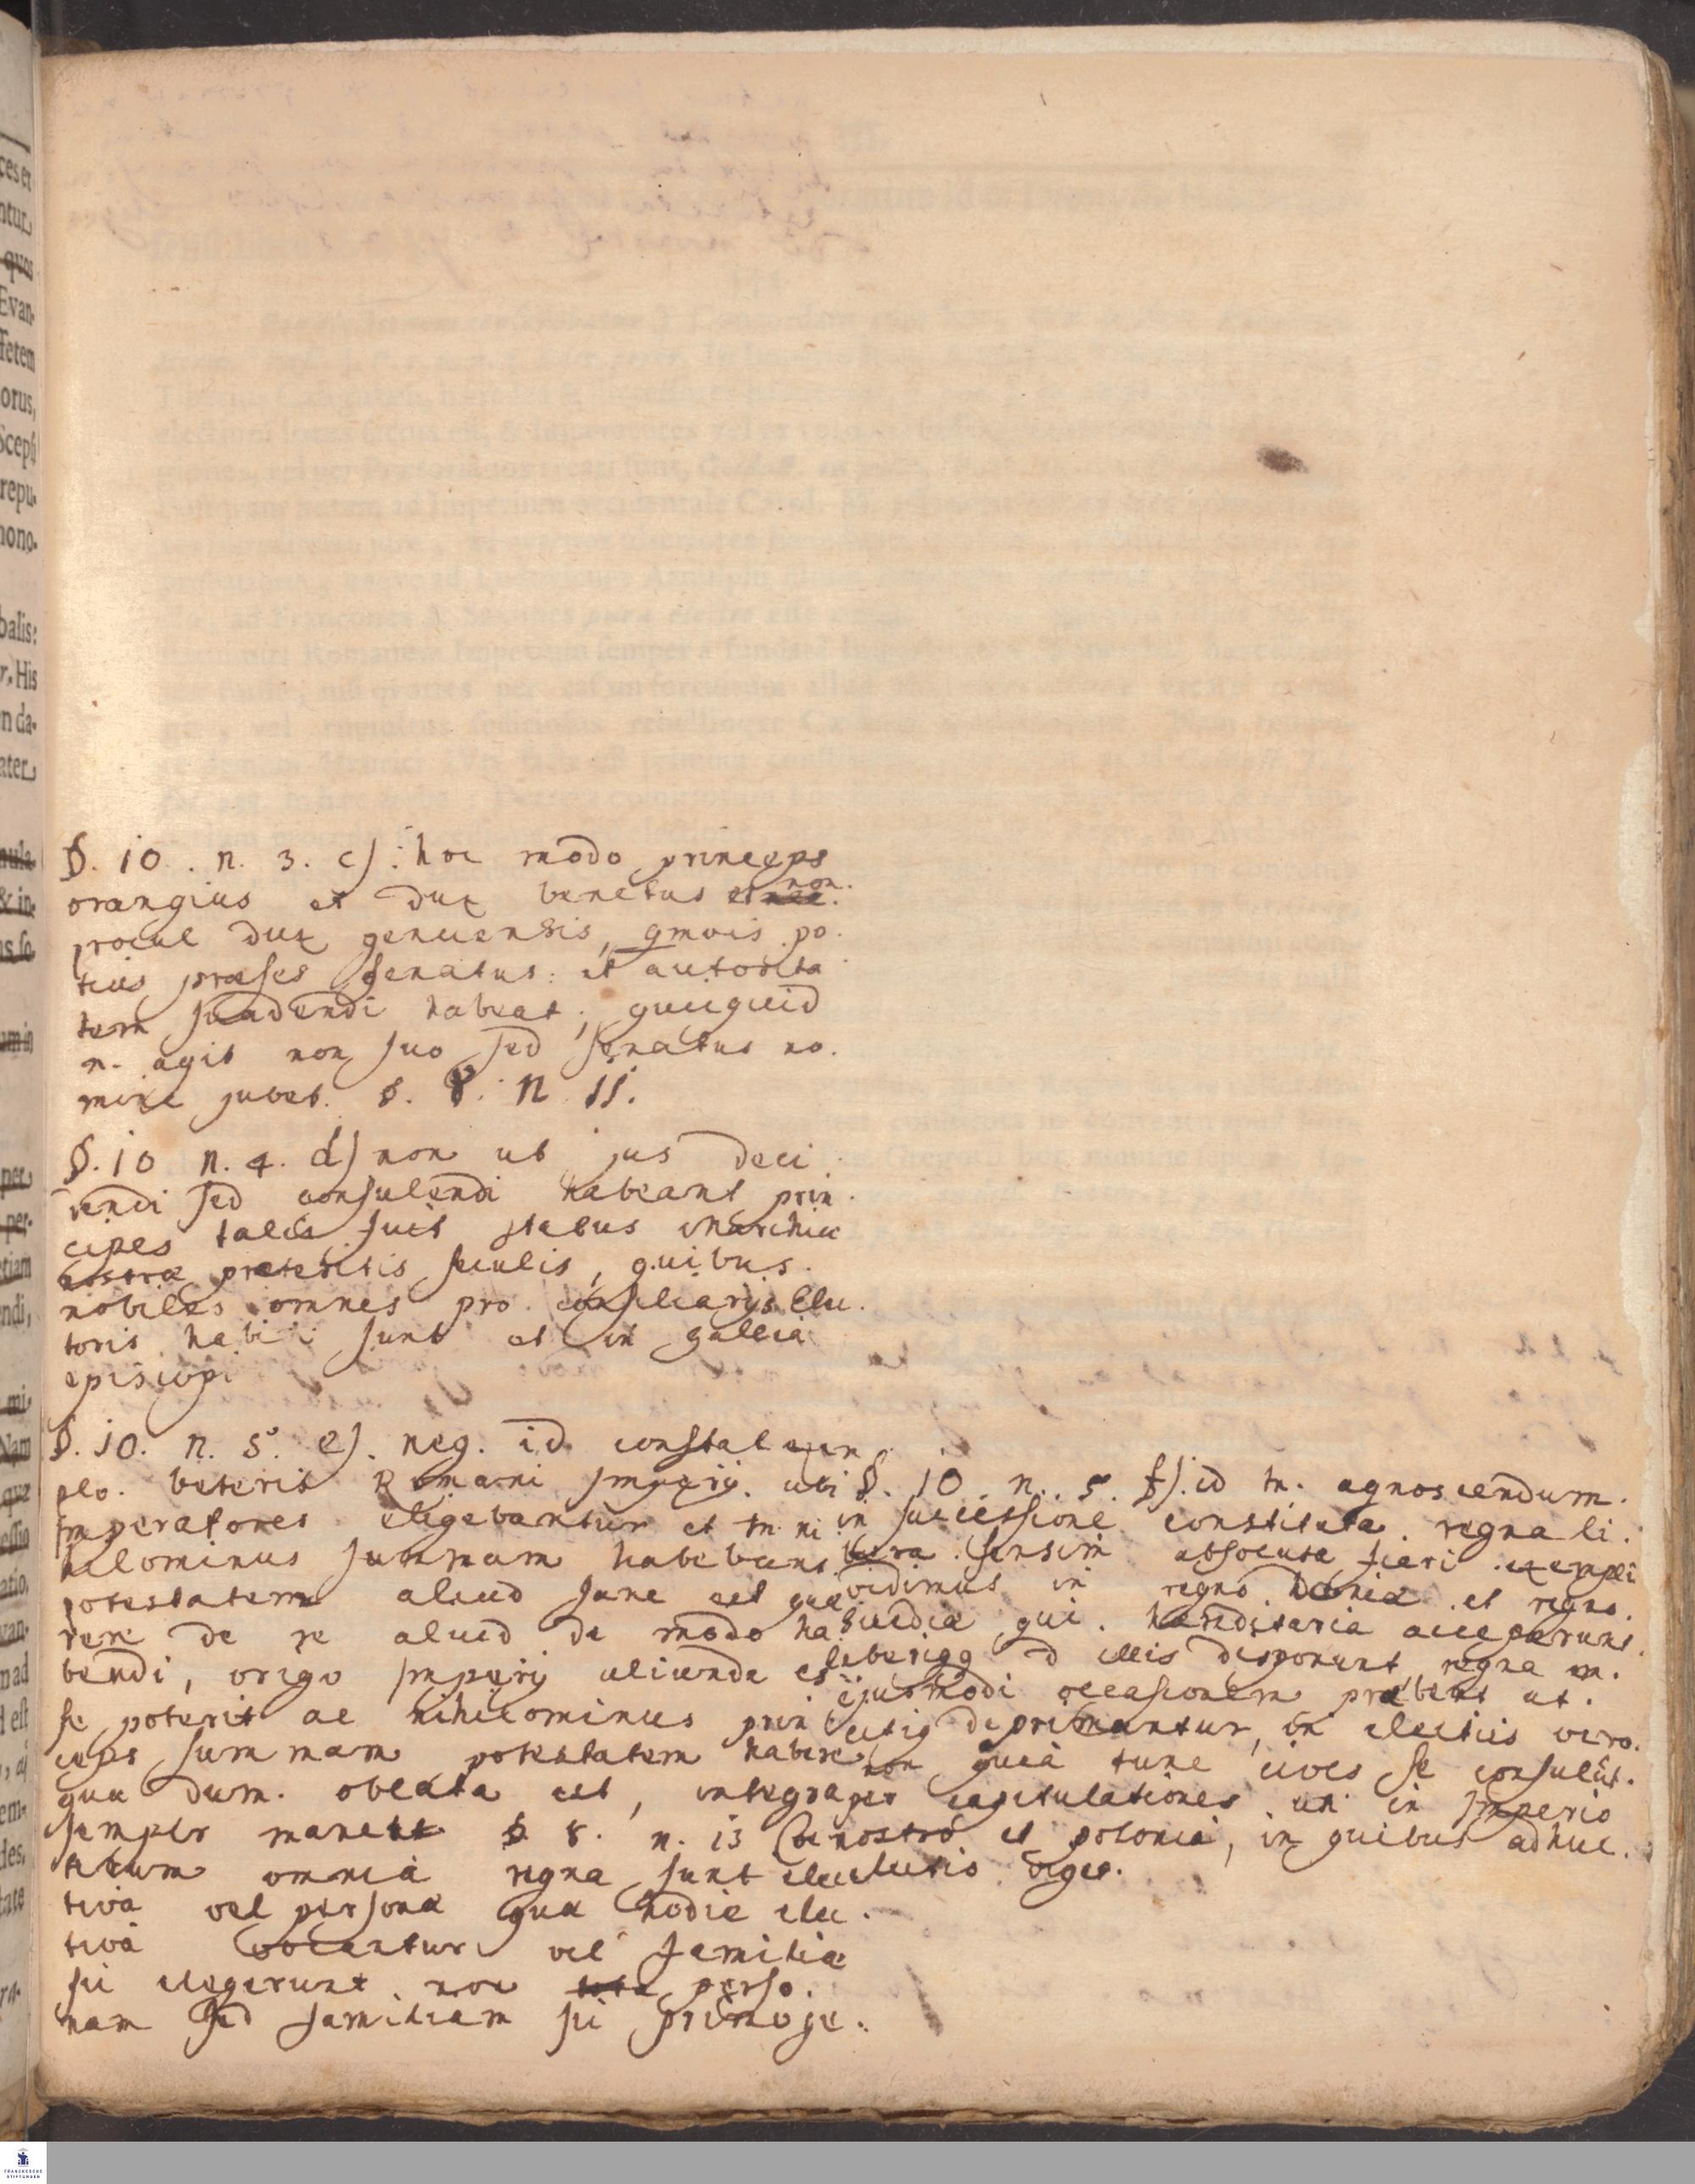 §. 10. n. 3. c) hoc modo princeps
orangius et dux venetus et non
procul dux genuensis, qmvis po.
tius præses senatus: et autorita
tem suadendi habeat; quicquid
n. agit non suo sed senatus no.
mine jubet. §. 8. n 11.
§. 10 n. 4. d) non ut jus deci
dendi sed consulendi habeant prin.
cipes talis fuit status
præteritis seculis, quibus.
nobiles omnes pro consiliarijs Elec.
toris habiti sunt et in gallia
episcopi
§. 10. n. 5. e). neg. id constat exem
plo. veteris Romani Imperij. ubi
imperatores eligebantur et tn. ni
hilominus summam habebant
potestatem aliud sane est quæ
rere de re aliud de modo ha
bendi, origo imperij aliunde es
se poterit ac nihilominus prin
ceps summam potestatem habere
quæ dum. oblata est, integra
semper manet §. 8. n. 13
omnia regna sunt elec
tiva vel persona quæ hodie elec.
tiva vocantur vel familia
si elegerunt non perso.
nam sed familiam si primoge.
§. 10. n. 5. f). id tn. agnoscendum.
in successione constituta. regna li.
bera sensim absoluta fieri exempli
vidimus in regno Daniæ et regno.
suediæ qui. hæreditaria acceperunt.
liberiqq d illis disponunt, regna
ejusmodi occasionem præbent ut.
deprimantur, in electis vero.
non quia tunc cives se consulut.
per capitulationes uti in Imperio
nostro et polonia, in quibus adhuc.
electio viget.
FRANCKESCHE
STIFTUNGEN